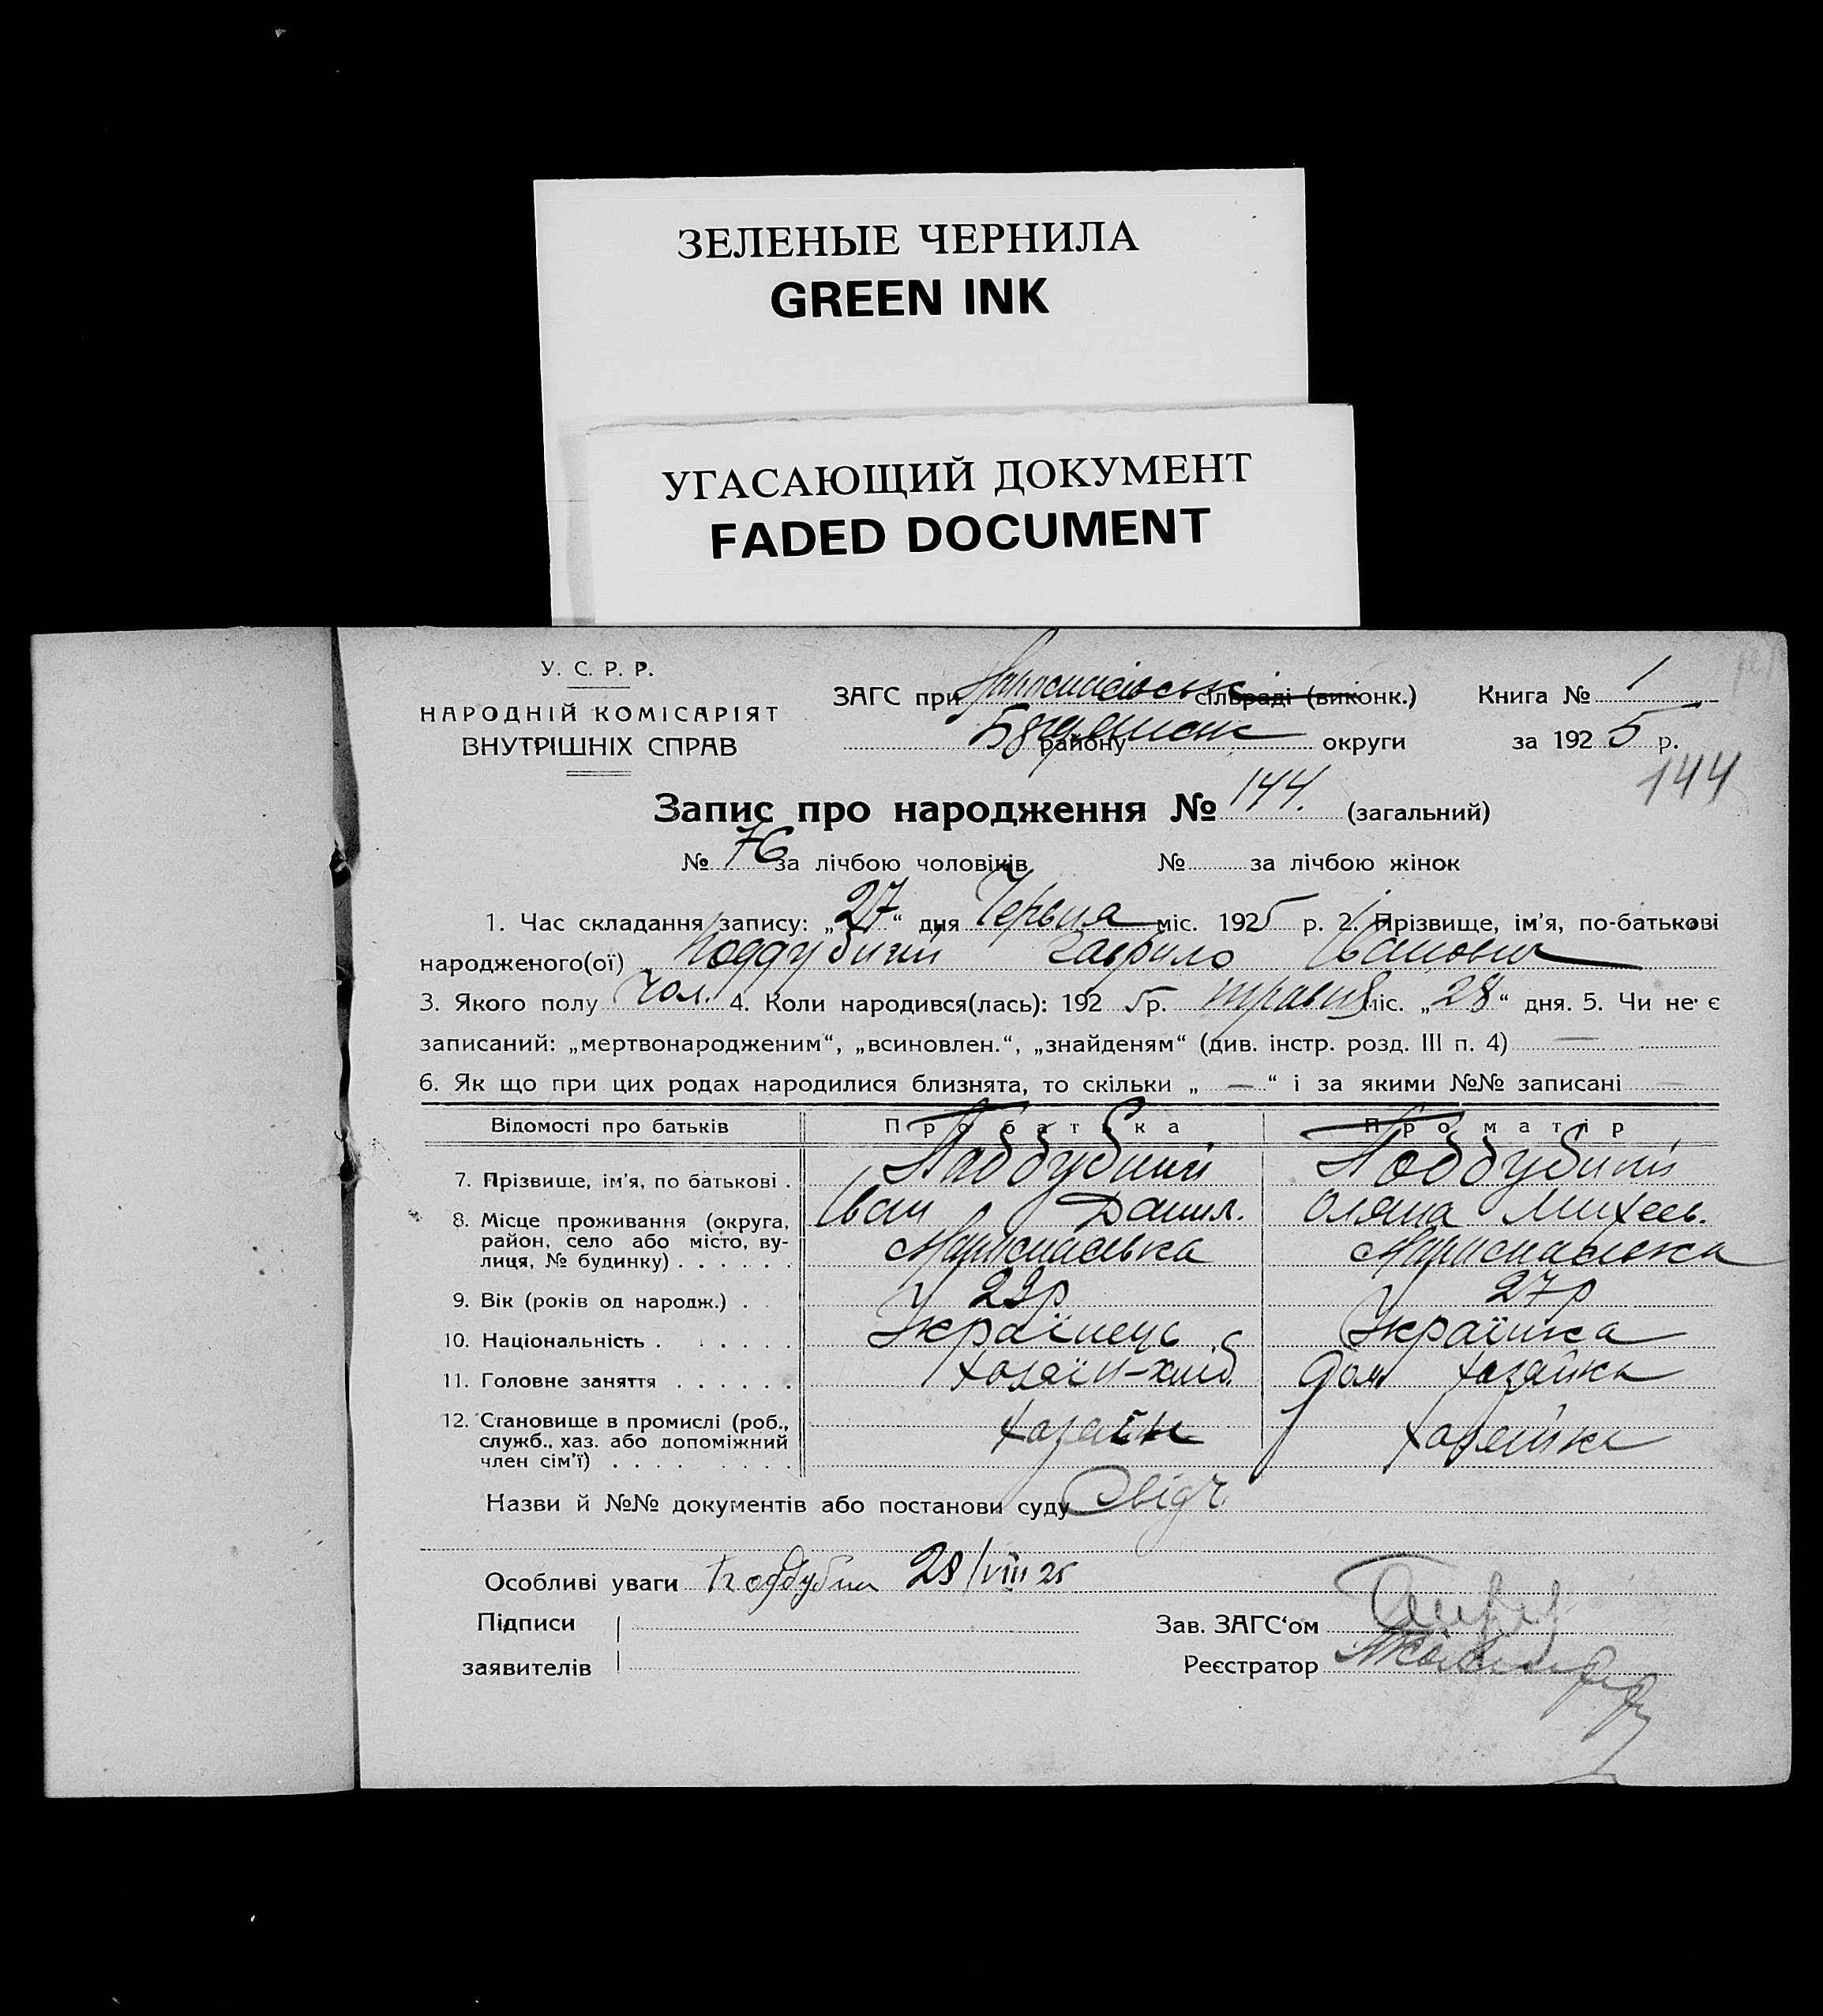 ЗЕЛЕНЫЕ ЧЕРНИЛА
GREEN INK
УГАСАЮЩИЙ ДОКУМЕНТ
FADED DOCUMENT
У. С. Р. Р.
НАРОДНІЙ КОМІСАРІЯТ
ВНУТРІШНІХ СПРАВ
ЗАГС при сільраді (виконк.) Книга № 1
району округи за 1925 р.
144
Запис про народження № 144. (загальний)
№ 76 за лічбою чоловіків № за лічбою жінок
1. Час складання запису: „27“ дня Червня міс. 1925 р. 2. Прізвище, ім'я, по-батькові
народженого(ої) Поддубний Гаврило Іванович
3. Якого полу чол. 4. Коли народився(лась): 1925 р. травня міс. „28“ дня. 5. Чи не є
записаний: „мертвонародженим“, „всиновлен.“, „знайденям“ (див. інстр. розд. III п. 4) —
6. Як що при цих родах народилися близнята, то скільки „—“ і за якими №№ записані —
Відомості про батьків Про батька Про матір
7. Прізвище, ім'я, по батькові . Поддубний Поддубний
Іван Данил. Оляна Михеев.
8. Місце проживання (округа, район, село або місто, вулиця, № будинку) . . . . . .
9. Вік (років од народж.) . 27р
10. Національність . . . . . Українець Українка
11. Головне заняття . . . . . . Хазяїн-хліб. Дом хазяйка
12. Становище в промислі (роб., служб., хаз. або допоміжний член сім'ї) . . . . . . . . Хазяїн Хазяйка
Назви й №№ документів або постанови суду Свідч.
Особливі уваги Поддубний 28/VIII 25
Підписи
заявителів
Зав. ЗАГС‘ом
Реєстратор